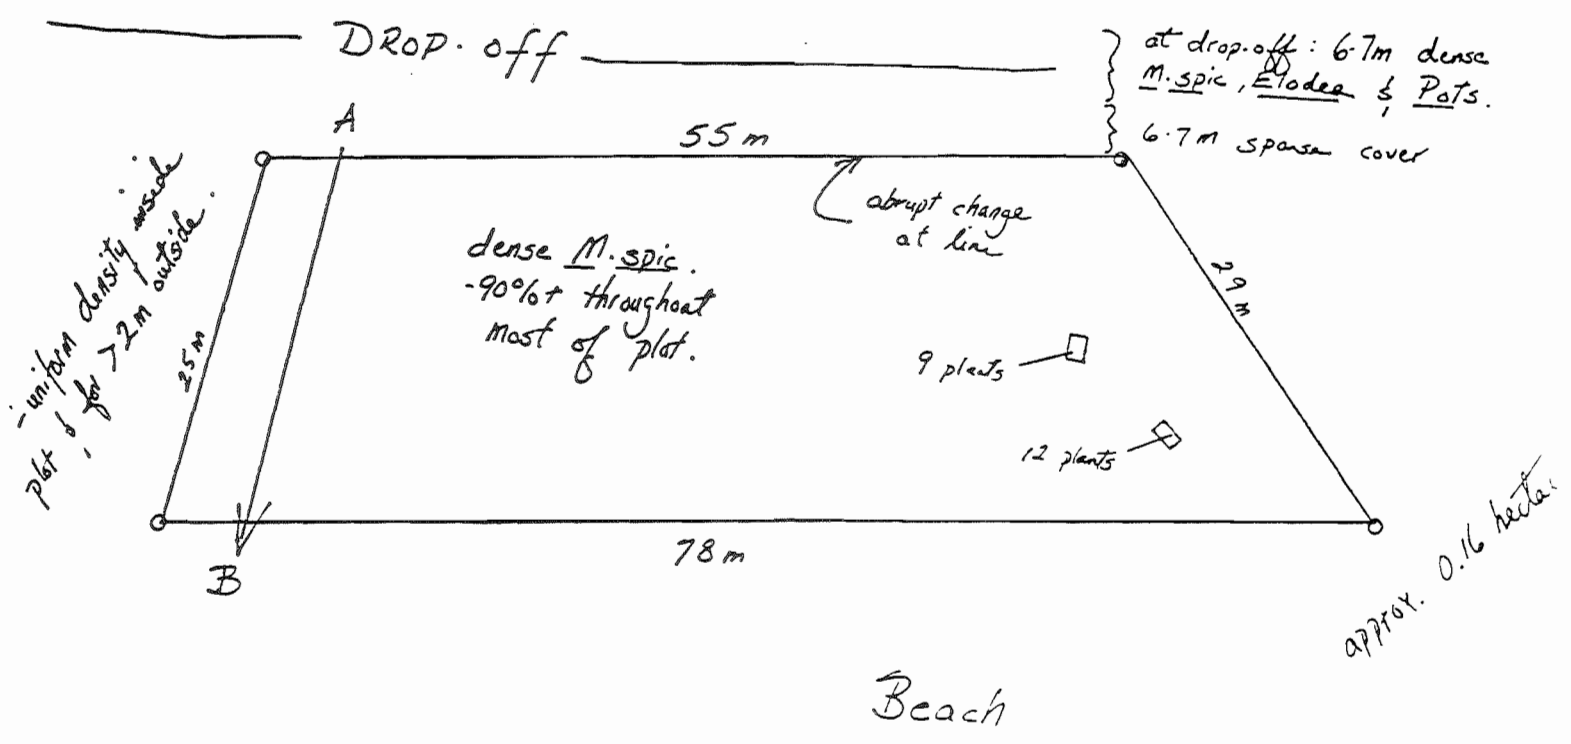 DROP-off
at drop-off : 6-7m dense
M. spic, Elodea & Pots.
6-7m sparse cover
A
55 m
abrupt change
at line
- uniform density inside
plot & for >2m outside.
dense M. spic.
-90%+ throughout
most of plot.
25 m
29 m
9 plants
12 plants
78 m
B
approx. 0.16 hecta.
Beach